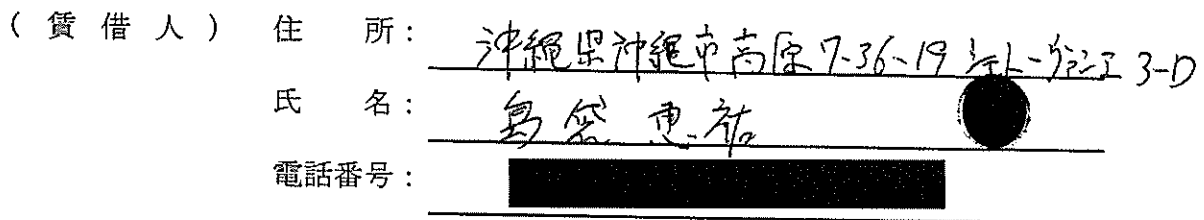 (賃借人) 住所: 沖縄県沖縄市高原7-36-19 3-D
氏名: 島袋 恵祐
電話番号: